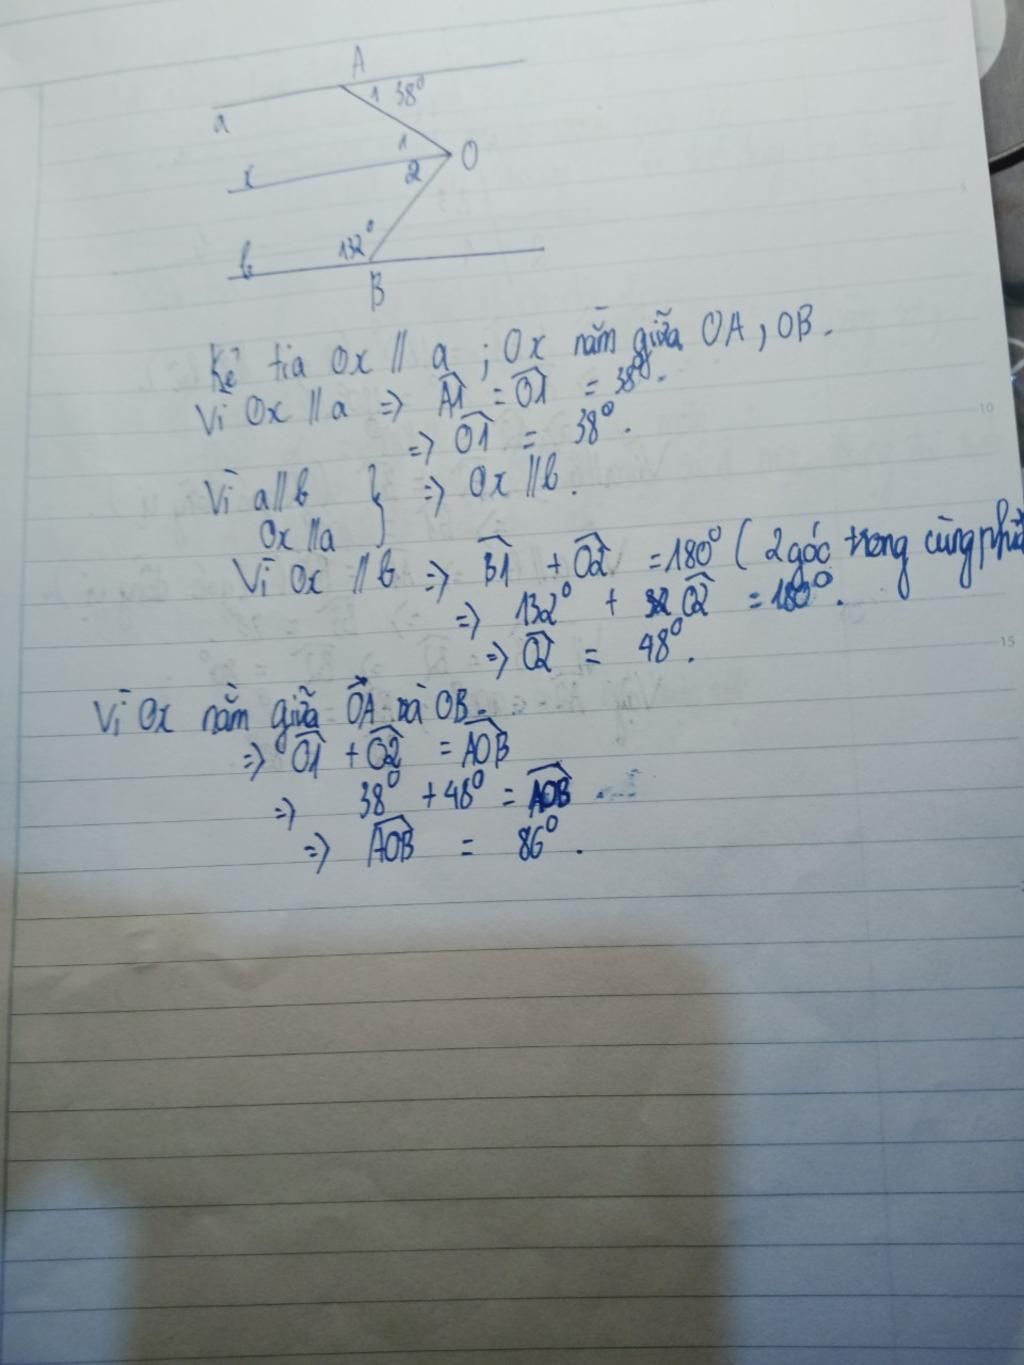 A
1 38°
a
1
O
x
2
132°
b
B
Kẻ tia Ox // a ; Ox nằm giữa OA, OB.
Vì Ox // a => A1 = O1 = 38°.
=> O1 = 38°.
Vì a // b } => Ox // b.
Ox // a
Vì Ox // b => B1 + O2 = 180° ( 2 góc trong cùng phía
=> 132° + O2 = 180°.
=> O2 = 48°.
Vì Ox nằm giữa OA và OB.
=> O1 + O2 = AOB
=> 38° + 48° = AOB
=> AOB = 86°.
5
10
15